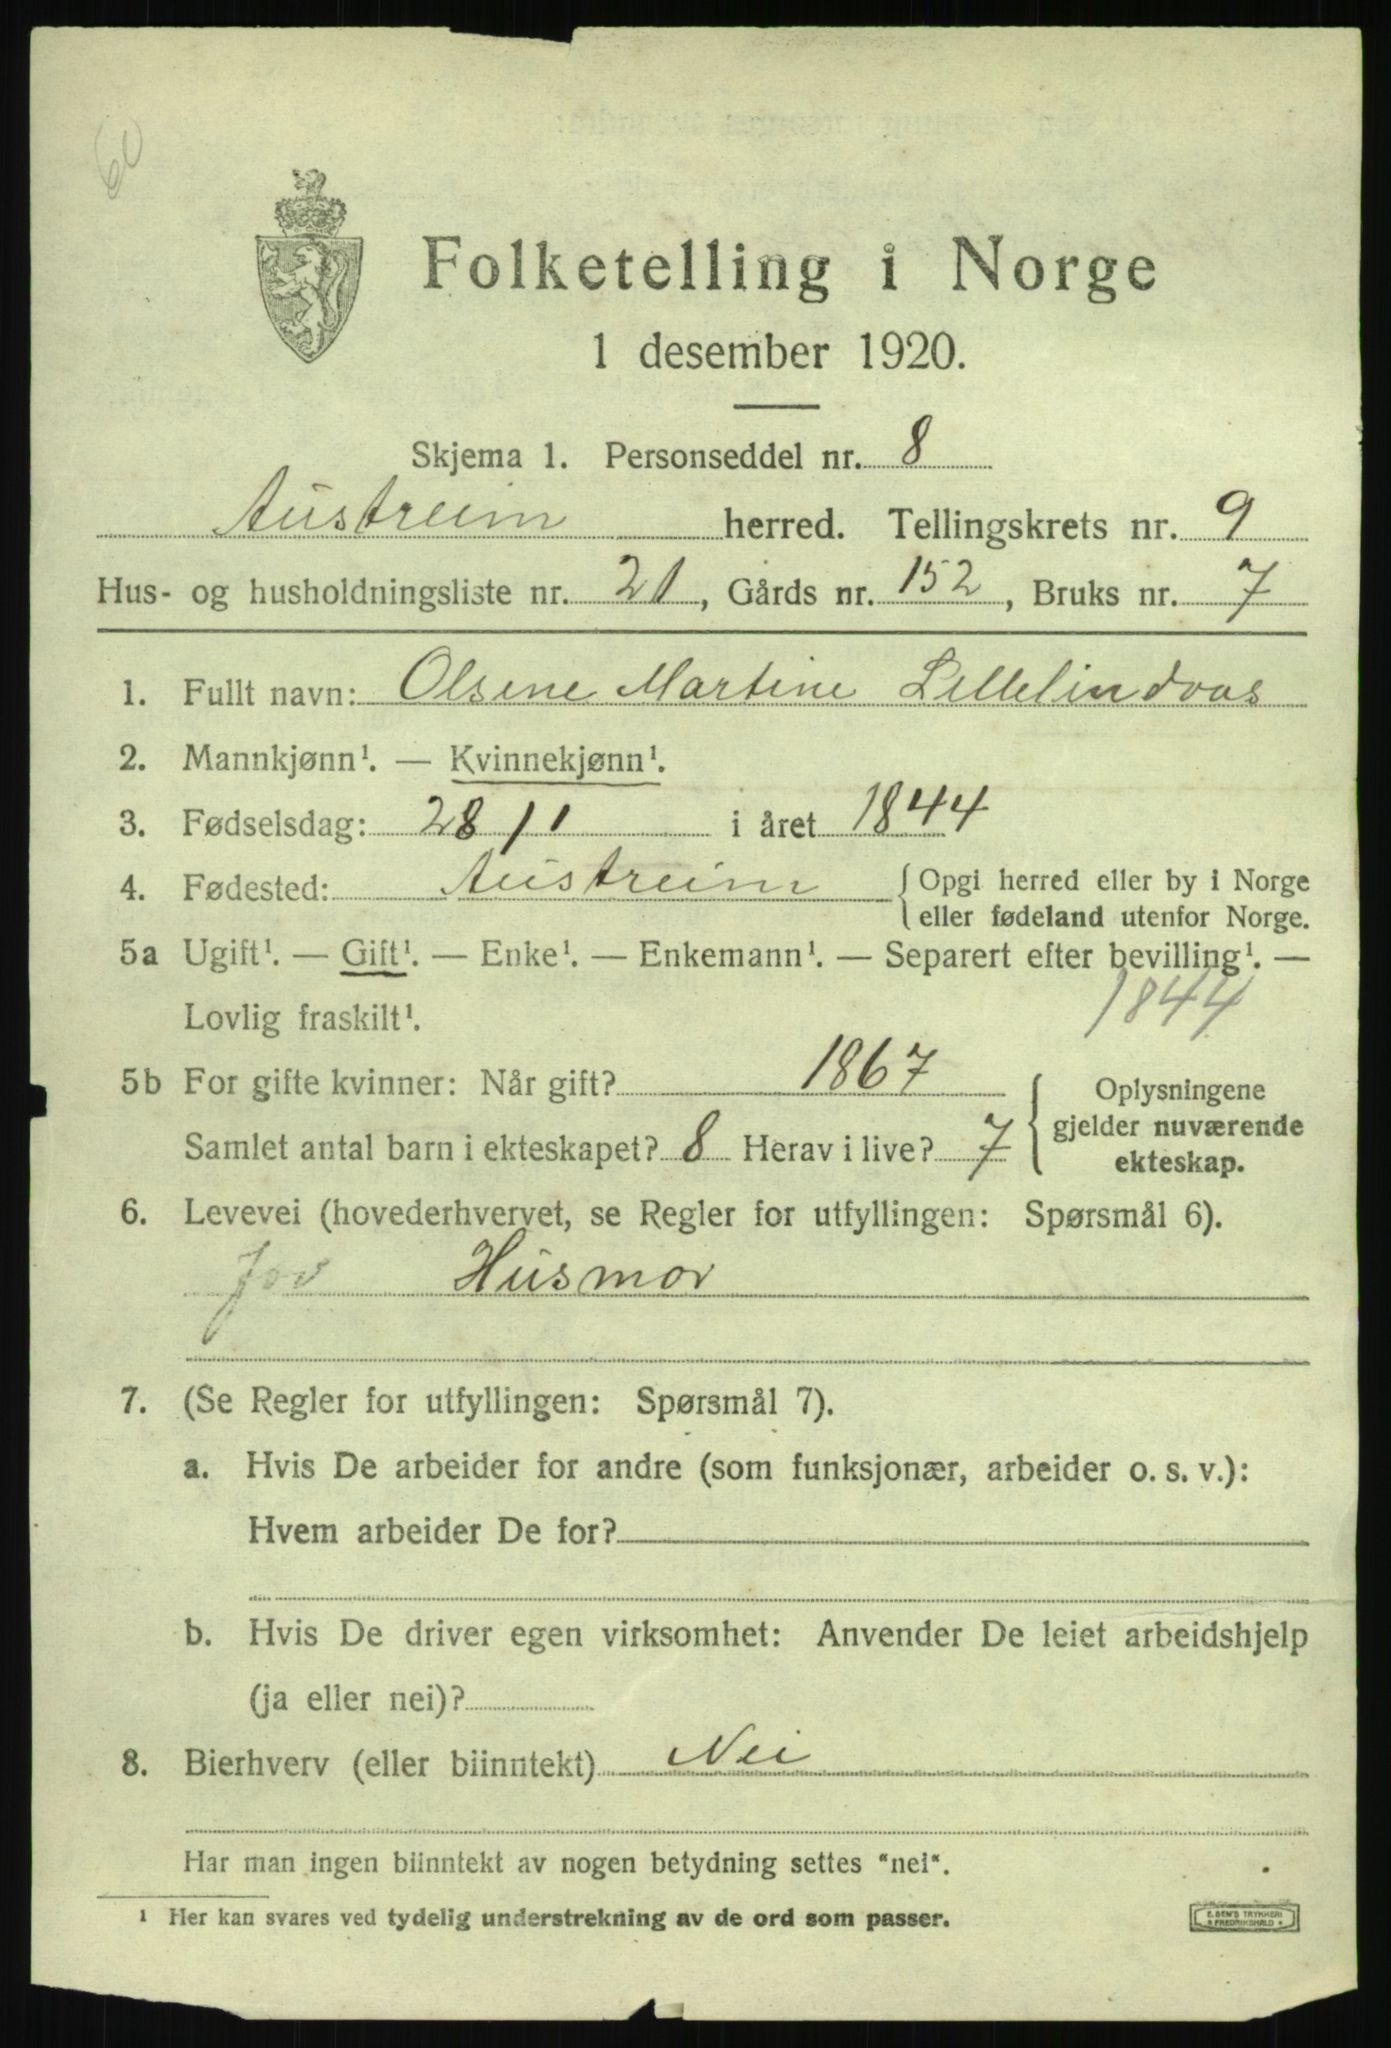 60
Folketelling i Norge
1 desember 1920.
Skjema 1. Personseddel nr. 8
Austreim herred. Tellingskrets nr. 9
Hus- og husholdningsliste nr. 21, Gårds nr. 152, Bruks nr. 7
1. Fullt navn: Olsene Martine Lillelindaas
2. Mannkjønn¹. — Kvinnekjønn¹.
3. Fødselsdag: 28/1 i året 1844
4. Fødested: Austreim { Opgi herred eller by i Norge
eller fødeland utenfor Norge.
5a Ugift¹. — Gift¹. — Enke¹. — Enkemann¹. — Separert efter bevilling¹. —
Lovlig fraskilt¹. 1844
5b For gifte kvinner: Når gift? 1867
Samlet antal barn i ekteskapet? 8 Herav i live? 7
{ Oplysningene
gjelder nuværende
ekteskap.
6. Levevei (hovederhvervet, se Regler for utfyllingen: Spørsmål 6).
Jov Husmor
7. (Se Regler for utfyllingen: Spørsmål 7).
a. Hvis De arbeider for andre (som funksjonær, arbeider o. s. v.):
Hvem arbeider De for?
b. Hvis De driver egen virksomhet: Anvender De leiet arbeidshjelp
(ja eller nei)?
8. Bierhverv (eller biinntekt) Nei
Har man ingen biinntekt av nogen betydning settes "nei".
¹ Her kan svares ved tydelig understrekning av de ord som passer.
E. SEM'S TRYKKERI
FREDRIKSHALD